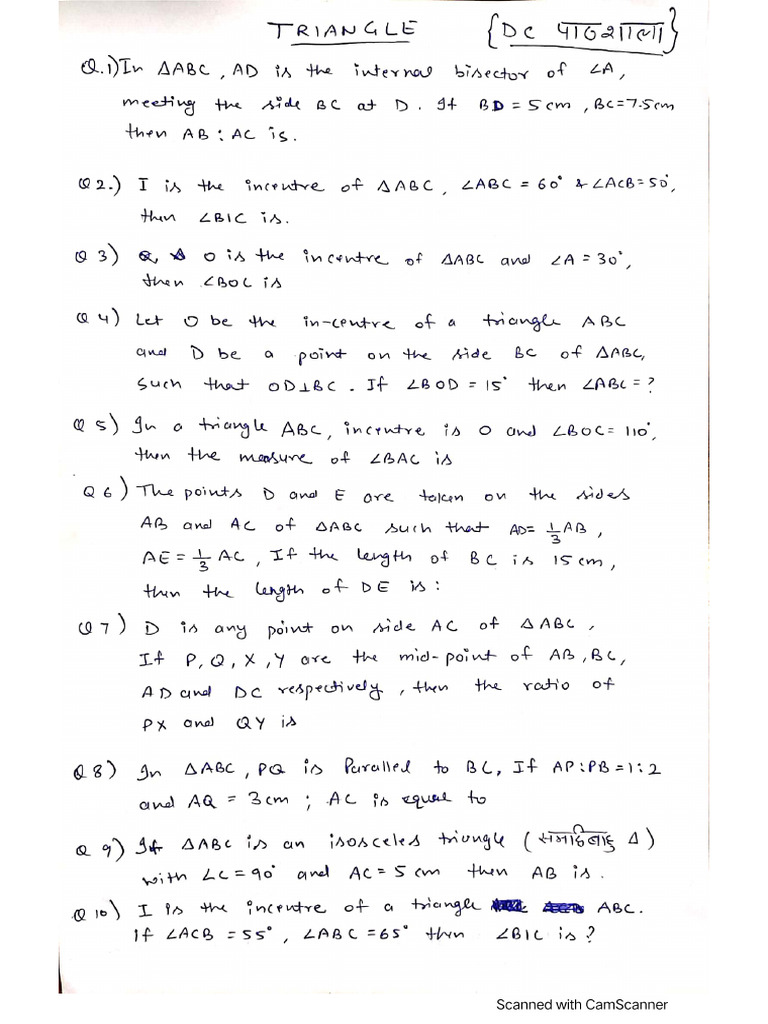 TRIANGLE {DC पाठशाला}
Q.1) In ΔABC, AD is the internal bisector of ∠A,
meeting the side BC at D. If BD = 5 cm, BC = 7.5 cm
then AB : AC is.
Q 2.) I is the incentre of ΔABC, ∠ABC = 60° & ∠ACB = 50°,
then ∠BIC is.
Q 3) O is the incentre of ΔABC and ∠A = 30°,
then ∠BOC is
Q 4) Let O be the in-centre of a triangle ABC
and D be a point on the side BC of ΔABC,
such that OD⊥BC. If ∠BOD = 15° then ∠ABC = ?
Q 5) In a triangle ABC, incentre is O and ∠BOC = 110°,
then the measure of ∠BAC is
Q 6) The points D and E are taken on the sides
AB and AC of ΔABC such that AD = 1/3 AB,
AE = 1/3 AC, If the length of BC is 15 cm,
then the length of DE is:
Q 7) D is any point on side AC of ΔABC,
If P, Q, X, Y are the mid-point of AB, BC,
AD and DC respectively, then the ratio of
PX and QY is
Q 8) In ΔABC, PQ is Parallel to BC, If AP:PB = 1:2
and AQ = 3 cm; AC is equal to
Q 9) If ΔABC is an isosceles triangle (समद्विबाहु Δ)
with ∠C = 90° and AC = 5 cm then AB is.
Q 10) I is the incentre of a triangle ABC.
If ∠ACB = 55°, ∠ABC = 65° then ∠BIC is?
Scanned with CamScanner